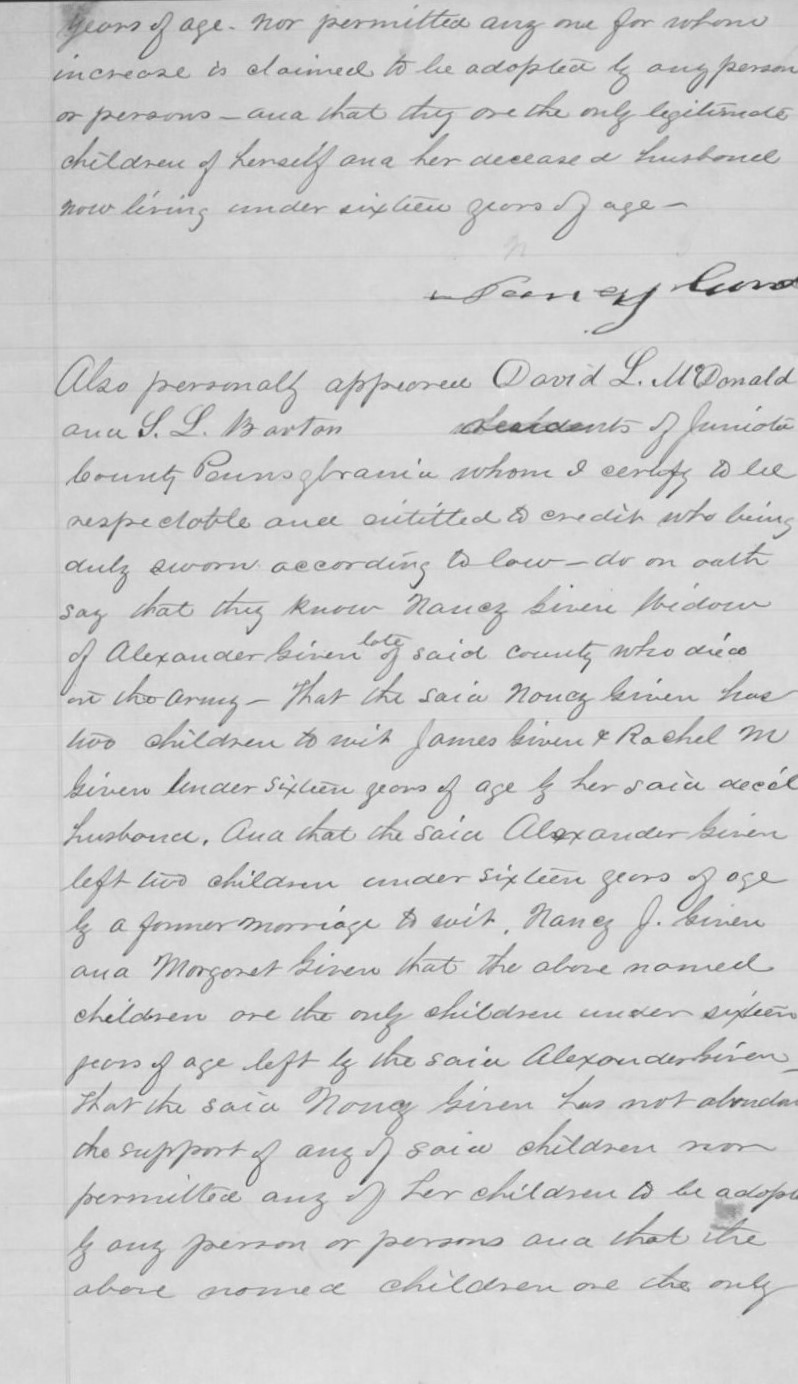 years of age. nor permitted any one for whom
increase is claimed to be adopted by any person
or persons – and that they are the only legitimate
children of herself and her deceased husband
now living under sixteen years of age –
Nancy
Also personally appeared David L. McDonald
and S. L. Barton residents of Juniata
County Pennsylvania whom I certify to be
respectable and entitled to credit who being
duly sworn according to law – do on oath
say that they know Nancy Given Widow
of Alexander Given late of said county who died
in the Army – That the said Nancy Given has
two children to wit James Given & Rachel M
Given Under sixteen years of age by her said dec'd
husband. And that the said Alexander Given
left two children under sixteen years of age
by a former marriage to wit, Nancy J. Given
and Margaret Given that the above named
children are the only children under sixteen
years of age left by the said Alexander Given –
That the said Nancy Given has not abandon
the support of any of said children nor
permitted any of her children to be adopt
by any person or persons and that the
above named children are the only